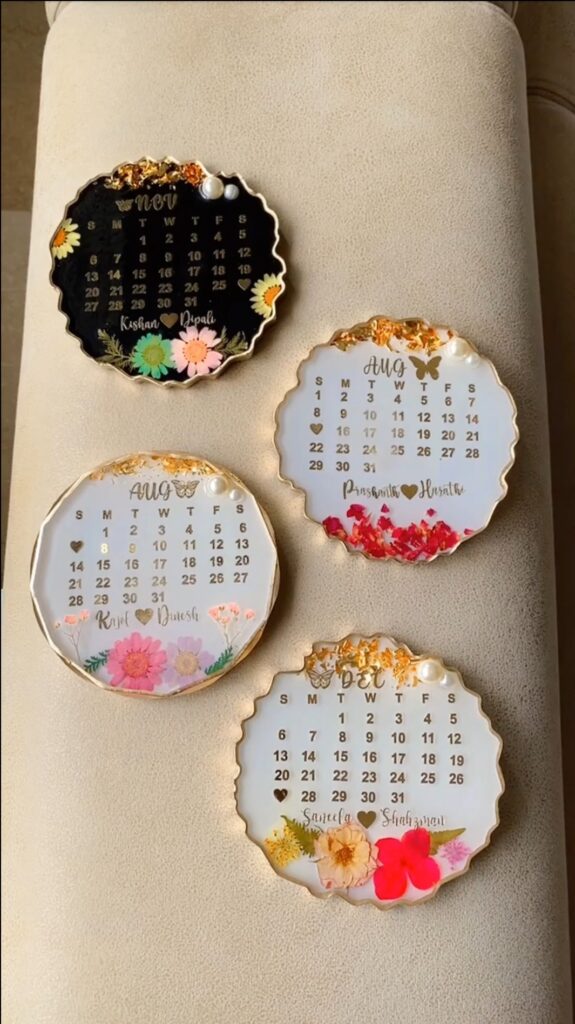 NOV
S M T W T F S
1 2 3 4 5
6 7 8 9 10 11 12
13 14 15 16 17 18 19
20 21 22 23 24 25
27 28 29 30 31
Kishan Dipali
AUG
S M T W T F S
1 2 3 4 5 6 7
8 9 10 11 12 13 14
16 17 18 19 20 21
22 23 24 25 26 27 28
29 30 31
Prashanth Harathi
AUG
S M T W T F S
1 2 3 4 5 6
8 9 10 11 12 13
14 15 16 17 18 19 20
21 22 23 24 25 26 27
28 29 30 31
Kajol Dinesh
DEC
S M T W T F S
1 2 3 4 5
6 7 8 9 10 11 12
13 14 15 16 17 18 19
20 21 22 23 24 25 26
28 29 30 31
Saneela Shahzman